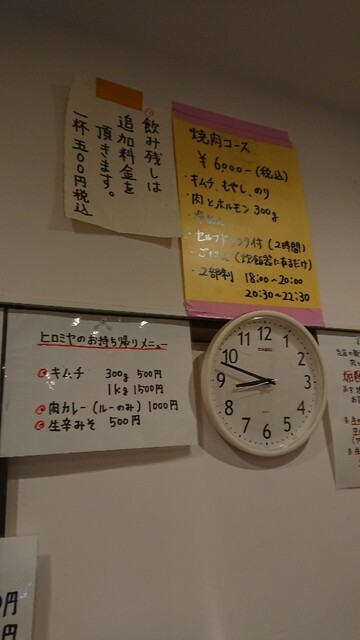 飲み残しは
追加料金を
頂きます。
一杯五00円税込
焼肉コース
¥6,000-(税込)
・キムチ、もやし、のり
・肉とホルモン300g
・セルフドリンク付(2時間)
・ごはん(炊飯器にあるだけ)
・2部制 18:00~20:00
20:30~22:30
ヒロミヤのお持ち帰りメニュー
キムチ 300g 500円
1kg 1500円
肉カレー(ルーのみ) 1000円
生辛みそ 500円
CASIO
12
1
2
3
4
5
6
7
8
9
10
11
円
円